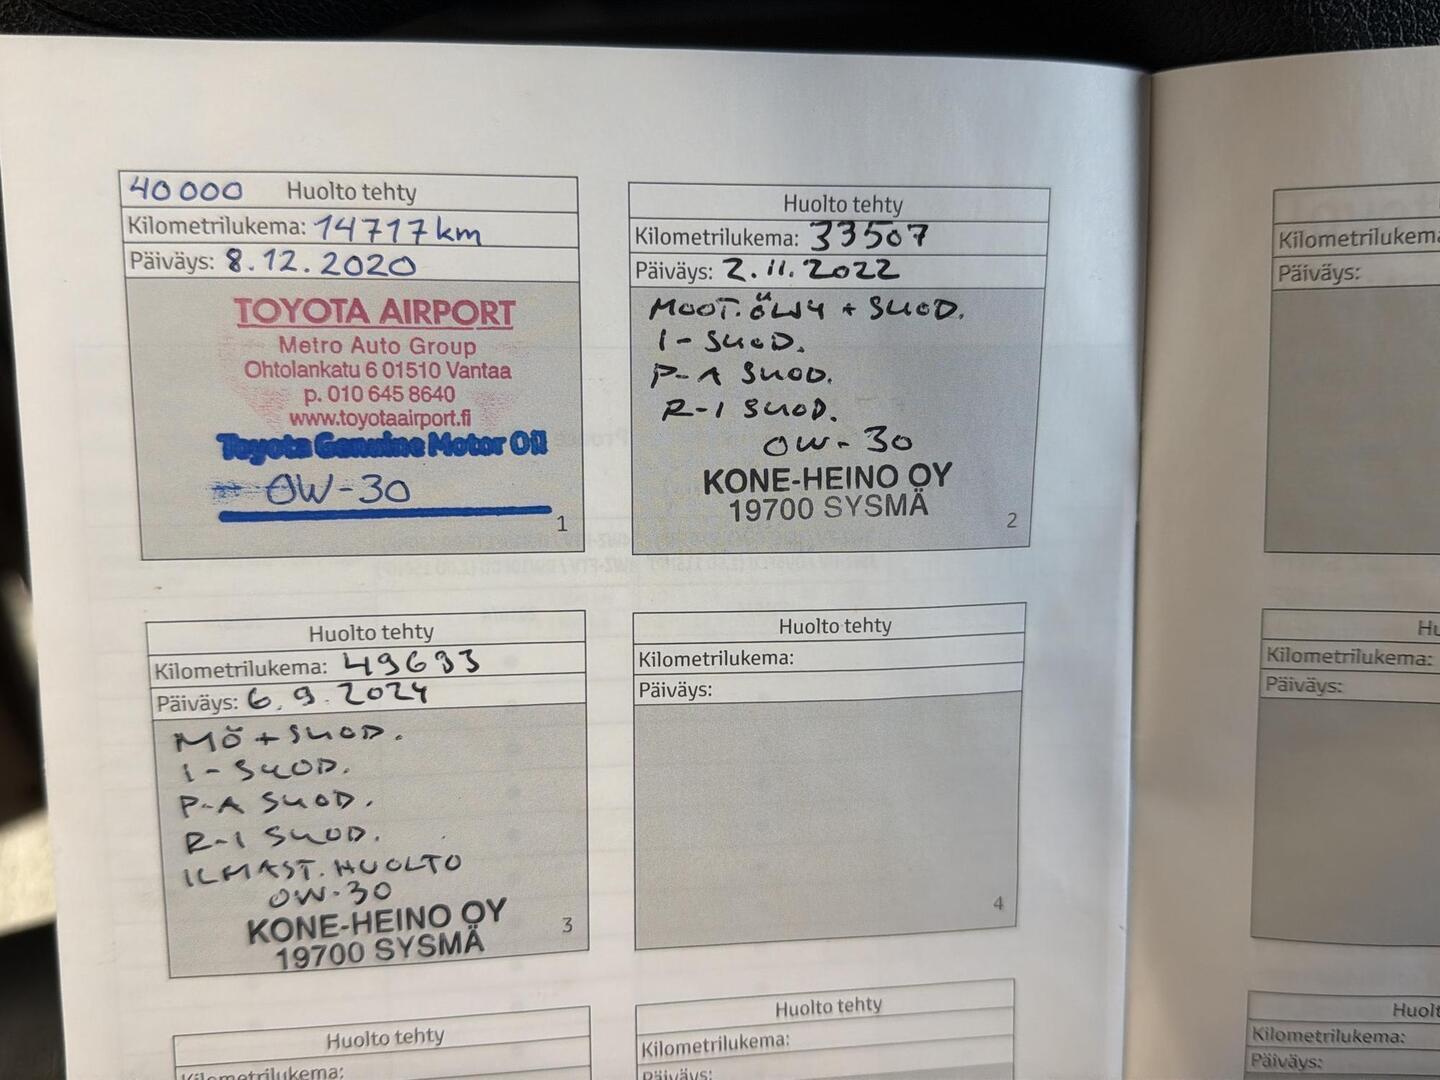 40000 Huolto tehty
Kilometrilukema: 14717km
Päiväys: 8.12.2020
TOYOTA AIRPORT
Metro Auto Group
Ohtolankatu 6 01510 Vantaa
p. 010 645 8640
www.toyotaairport.fi
Toyota Genuine Motor Oil
0W-30
1
Huolto tehty
Kilometrilukema: 33507
Päiväys: 2.11.2022
MOOT.ÖLJY + SUOD.
I-SUOD.
P-A SUOD.
R-I SUOD.
0W-30
KONE-HEINO OY
19700 SYSMÄ
2
Huolto tehty
Kilometrilukema: 49633
Päiväys: 6.9.2024
MÖ + SUOD.
I-SUOD.
P-A SUOD.
R-I SUOD.
ILMAST. HUOLTO
0W-30
KONE-HEINO OY
19700 SYSMÄ
3
Huolto tehty
Kilometrilukema:
Päiväys:
4
Huolto tehty
Kilometrilukema:
Huolto tehty
Kilometrilukema:
Päiväys:
Kilometrilukema
Päiväys:
Hu
Kilometrilukema:
Päiväys:
Huolt
Kilometrilukema:
Päiväys: